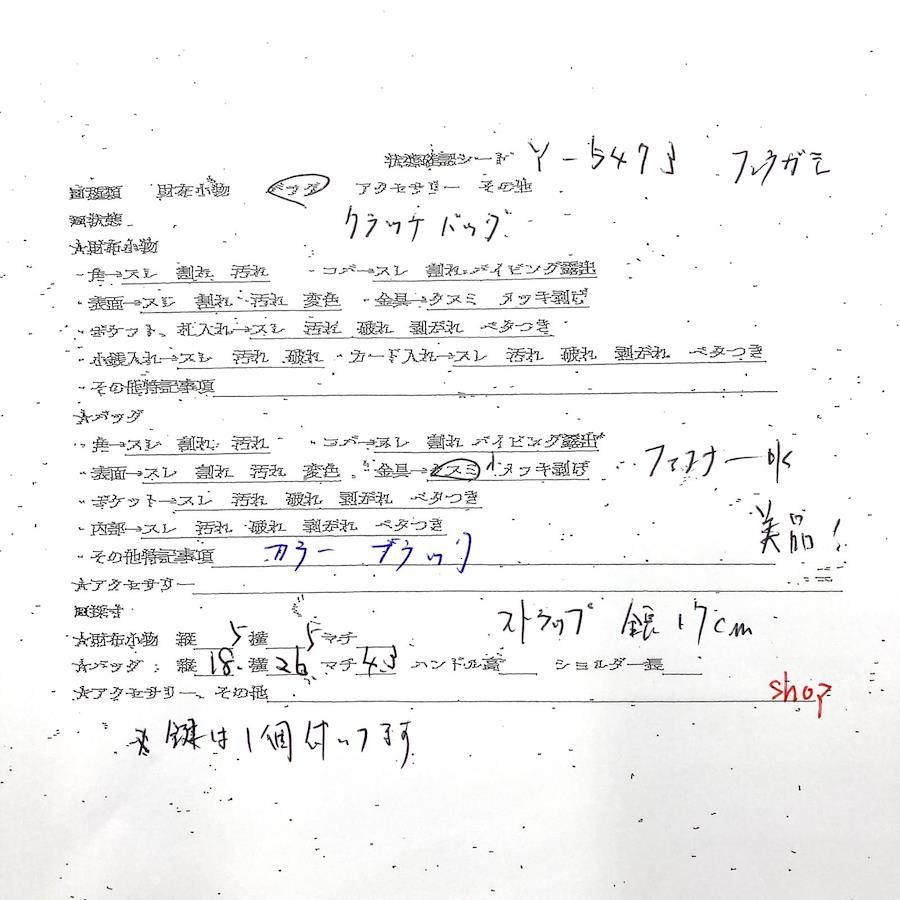 状態確認シート Y-547 フェラガモ
■種類 財布小物 バッグ アクセサリー その他
■状態 クラッチバッグ
★財布小物
・角→スレ 割れ 汚れ ・コバ→スレ 割れ パイピング露出
・表面→スレ 割れ 汚れ 変色 ・金具→クスミ メッキ剥げ
・ポケット、札入れ→スレ 汚れ 破れ 剥がれ ベタつき
・小銭入れ→スレ 汚れ 破れ ・カード入れ→スレ 汚れ 破れ 剥がれ ベタつき
・その他特記事項
★バッグ
・角→スレ 割れ 汚れ ・コバ→スレ 割れ パイピング露出
・表面→スレ 割れ 汚れ 変色 ・金具→クスミ 小 メッキ剥げ ファスナーOK
・ポケット→スレ 汚れ 破れ 剥がれ ベタつき
・内部→スレ 汚れ 破れ 剥がれ ベタつき 美品!
・その他特記事項 カラー ブラック
★アクセサリー
■採寸 ストラップ 全長 17cm
★財布小物 縦 横 マチ
★バッグ: 縦 18. 横 26 マチ 4.5 ハンドル高 ショルダー長
★アクセサリー、その他 shop
※鍵は1個付いてます